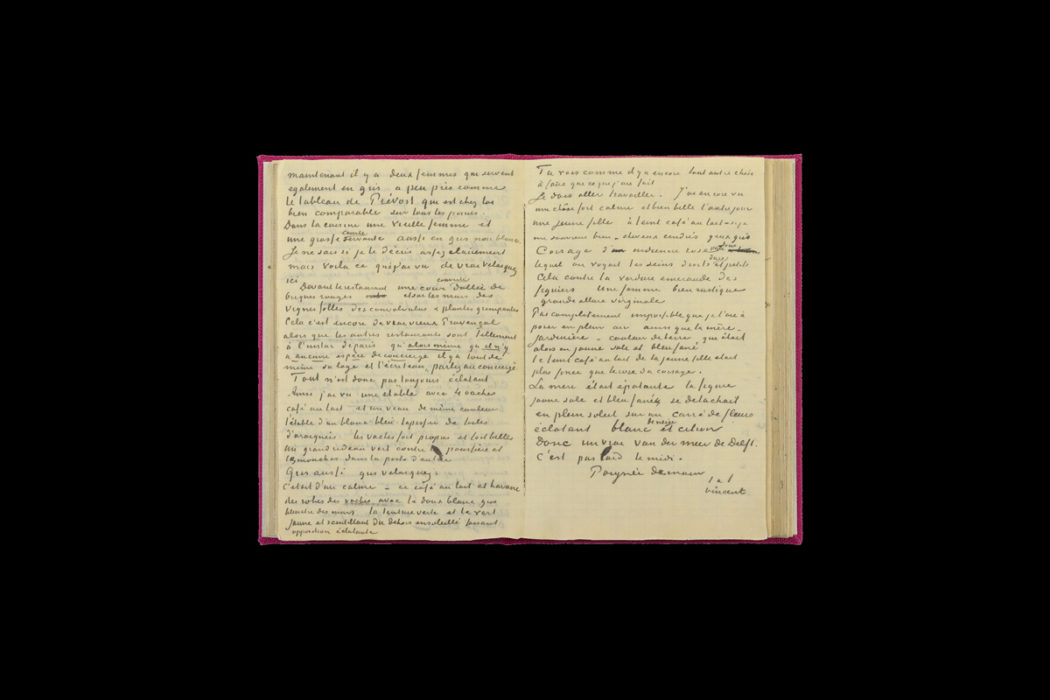 maintenant il y a deux femmes qui servent
egalement en gris a peu près comme
le tableau de Prévost qui est chez toi
bien comparable sur tous les points.
Dans la cuisine une vieille femme et
une grosse courte servante aussi en gris noir blanc.
Je ne sais si je le décris assez clairement
mais voila ce que j'ai vu de vrai velasquez
ici
Devant le restaurant une cour couverte dallée de
briques rouges et sur les murs des
vignes folles des convolvulus & plantes grimpantes
Cela c'est encore du vrai vieux Provençal
alors que les autres restaurants sont tellement
à l'instar deparis qu'alors même qu'il n'y
a aucune espèce de concierge il y a tout de
même sa loge et l'écriteau parlez au concierge
Tout n'est donc pas toujours éclatant
Ainsi j'ai vu une etable avec 4 vaches
café au lait et un veau de même couleur
l'étable d'un blanc bleu tapissée de toiles
d'araignées les vaches fort propres et fort belles
un grand rideau vert contre la poussière et
les mouches dans la porte d'entrée
Gris aussi gris velasquez.
C'était d'un calme – ce café au lait et havane
des robes des vaches avec le doux blanc gris
bleuâtre des murs la tenture verte et le vert
jaune et scintillant du dehors ensoleillé faisant
opposition éclatante
Tu vois comme il y a encore tout autre chose
à faire que ce que j'ai fait
Je dois aller travailler. J'ai encore vu
une chose fort calme et bien belle l'autre jour
une jeune fille à teint café au lait – si je
me souviens bien – cheveux cendrés yeux gris
Corsage d' indienne rose
lequel on voyait les seins droits durs et petits
Cela contre la verdure emeraude des
figuiers Une femme bien rustique
grande allure virginale
Pas completement impossible que je l'aie à
poser en plein air ainsi que la mère –
jardinière – couleur de terre qui était
alors en jaune sale et bleu fané
le teint café au lait de la jeune fille etait
plus foncé que le rose du corsage.
La mère était épatante la figure
jaune sale et bleu fané se detachait
en plein soleil sur un carré de fleurs
éclatant blanc de neige et citron
donc un vrai van der meer de Delft.
C'est pas laid le midi.
Poignée de main
t. à t.
vincent